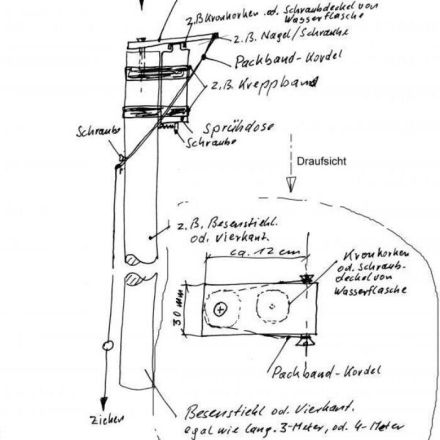 z.B. Kronkorken od. Schraubdeckel von
Wasserflasche
z.B. Nagel/Schraube
Packband-Kordel
z.B. Kreppband
Schraube
Sprühdose
Schraube
Draufsicht
z.B. Besenstiehl.
od. Vierkant.
ca. 12 cm
Kronkorken
od. Schraub-
deckel von
Wasserflasche
30 mm
Packband-Kordel
Ziehen
Besenstiehl od. Vierkant.
egal wie lang. 3-Meter, od. 4-Meter